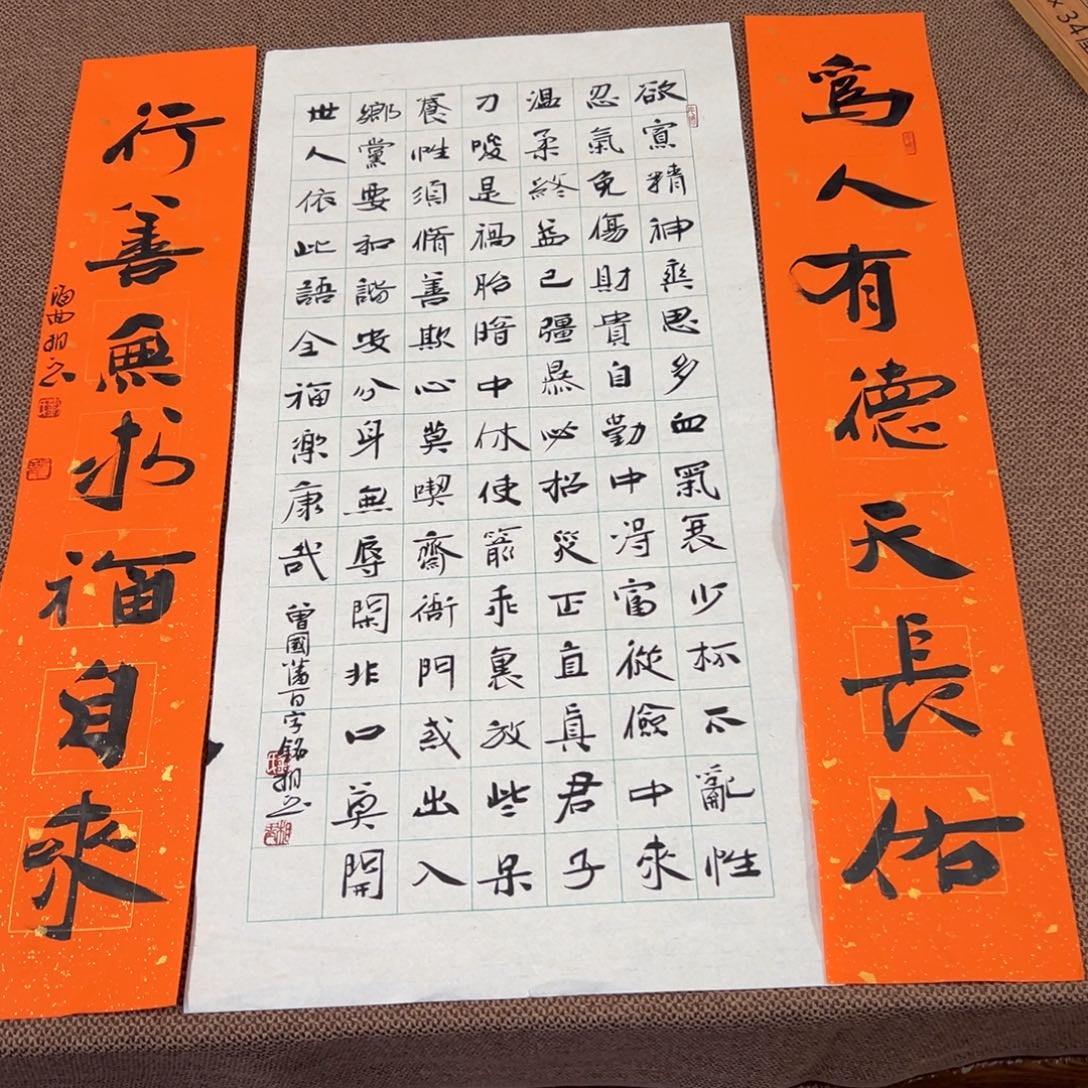 爲人有德天長佑
欲寡精神爽思多血氣衰少杯不亂性
忍氣免傷財貴自勤中得富從儉中來
温柔終益己彊暴必招災正直真君子
刀唆是禍胎暗中休使箭乖裏放些呆
養性須脩善欺心莫喫齋衙門戒出入
鄉黨要和諧安分身無辱閑非口莫開
世人依此語全福樂康哉
曾國藩百字銘
行善無求福自來